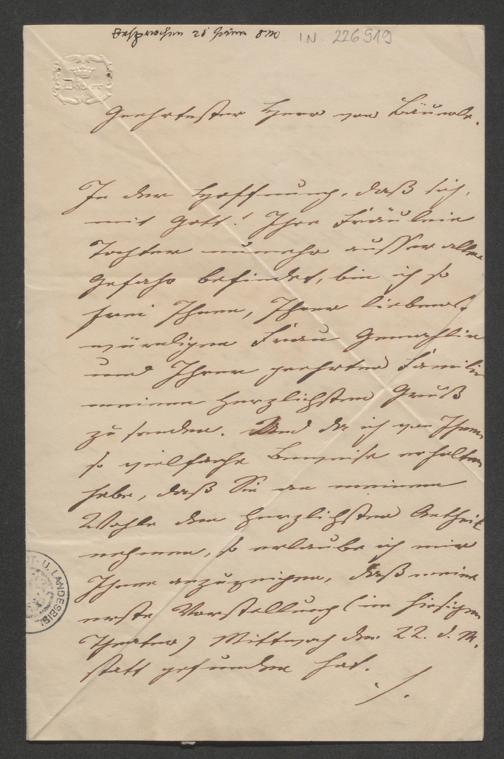 IN 226919
Geehrtester Herr von Bäuerle.
In der Hoffnung, daß sich,
mit Gott! Ihre Fräulein
Tochter nunmehr ausser aller
Gefahr befindet, bin ich so
frei Ihnen, Ihrer liebens-
würdigen Frau Gemahlin
und Ihrer geehrten Familie
meinen herzlichsten Gruß
zu senden. Und da ich von Ihnen
so vielfache Beweise erhalten
habe, daß Sie an meinem
Wohle den herzlichsten Antheil
nehmen, so erlaube ich mir
Ihnen anzuzeigen, daß meine
erste Vorstellung (im hiesigen
Theater) Mittwoch den 22. d. M.
statt gefunden hat.
./.
U. LANDESBI